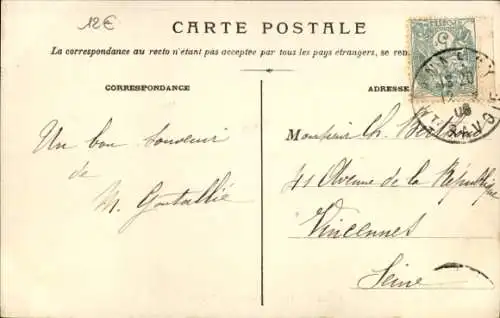 12€
CARTE POSTALE
La correspondance au recto n'étant pas acceptée par tous les pays étrangers, se ren
CORRESPONDANCE
ADRESSE
Un bon souvenir
de
M.
Monsieur Ch.
41 Avenue de la République
Vincennes
Seine